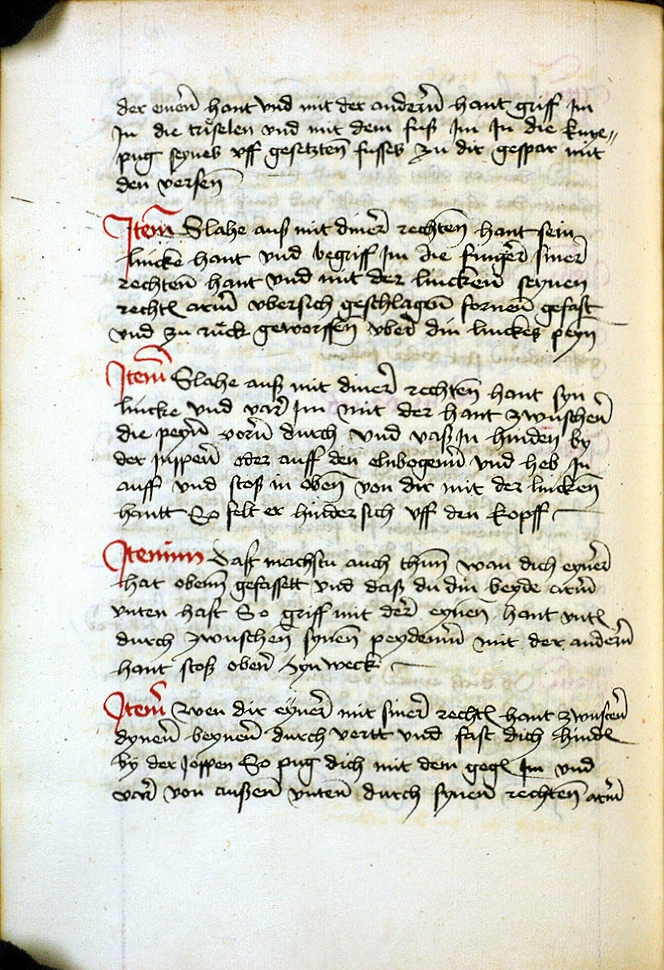 der einen hant vnd mit der anderñ hant griff Im
In die trüselen vnd mit dem fuß Im In die knye„
pug seyneß vff gesetzten fusses zu dir gespar mit
den versen
Item Slahe auß mit diner rechten hant sein
lincke hant vnd begriff Im die finger siner
rechten hant vnd mit der lincken seynen
rechtn arm vbersich geschlagen fornen gefast
vnd zu rück geworffen vber din linckes peyn
Item Slahe auß mit diner rechten hant syn
lincke vnd var Im mit der hant zwuschen
die peyn vorn durch vnd vaß In hinden by
der Juppen oder auff den elnbogenn vnd heb In
auff vnd stoß in oben von dir mit der lincken
hantt So felt er hinder sich vff den kopff
Itemm Daß machstu auch thun wan dich eyner
hat obenn gefasset vnd daß du din beyde arm
vnten hast So griff mit der eynen hant vntn
durch zwuschen synen peydenn mit der andern
hant stoß oben hyn weck
Item Wen dir eyner mit siner rechtn hant zwusen
dynen beynen durch vertt vnd fast dich hindn
by der Joppen So pug dich mit dem gegn Im vnd
var von außen vnten durch synen rechten arm